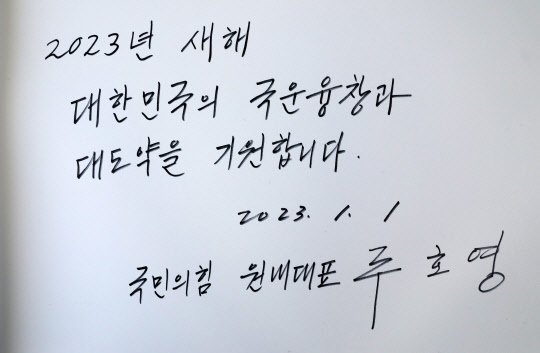 2023년 새해
대한민국의 국운융창과
대도약을 기원합니다.
2023. 1. 1
국민의힘 원내대표 주호영